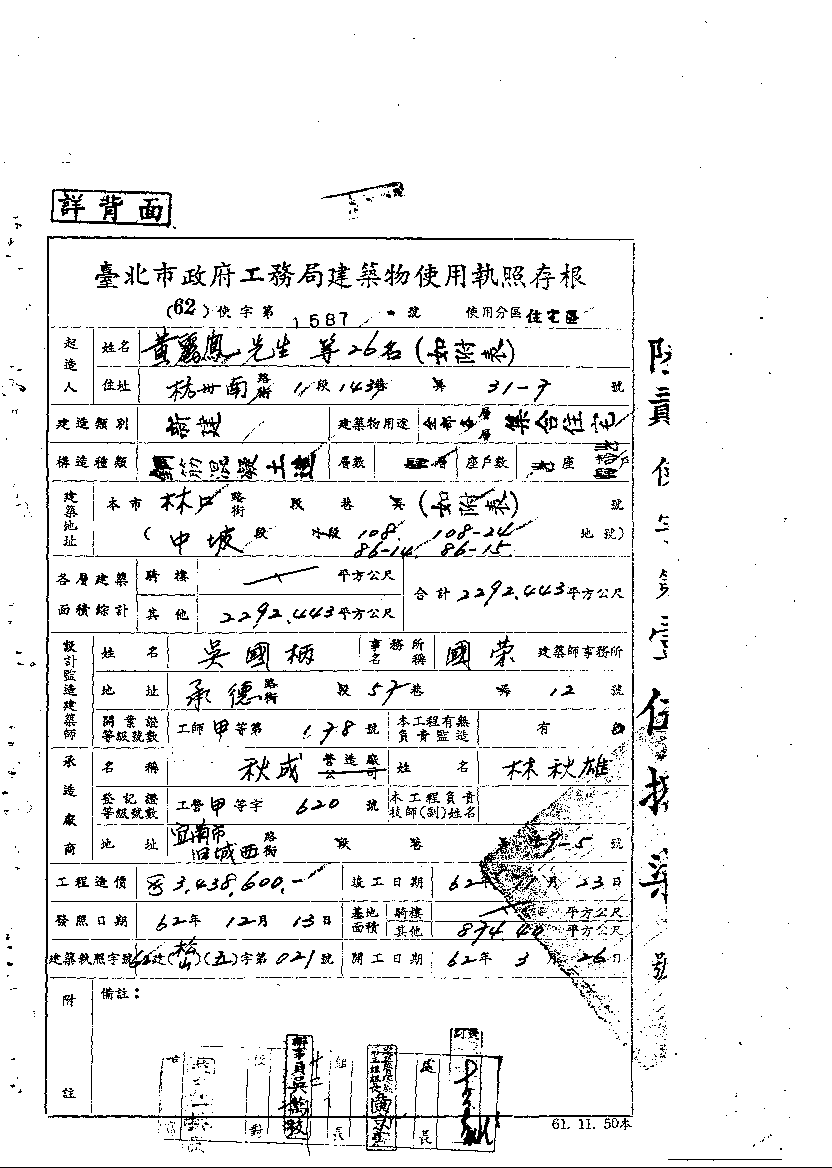 詳背面
臺北市政府工務局建築物使用執照存根
(62)使字第 1587 號 使用分區 住宅區
起造人 姓名 黃麗鳳 先生 等26名(如附表)
住址 杭州南路街 1段143巷 弄 31-7 號
建造類別 新建 建築物用途 全部各層層 集合住宅
構造種類 鋼筋混凝土造 層數 層 座戶數 座 戶
建築地址 本市 林口路街 段 巷 弄 (如附表) 號
(中坡 段 子段 108 108-24 地號)
86-14 86-15
各層建築面積綜計 騎樓 平方公尺 合計 2292.443平方公尺
其他 2292.443平方公尺
設計監造建築師 姓名 吳國柄 事務所名稱 國榮 建築師事務所
地址 承德路街 段 57巷 弄 12 號
開業證等級號數 工師甲等第 178 號 本工程有無負責監造 有
承造廠商 名稱 秋成 營造廠公司 姓名 林秋雄
登記證等級號數 工營甲等字 620 號 本工程負責技師(副)姓名
地址 宜蘭市旧城西路街 段 巷 9-5 號
工程造價 3,438,600.- 竣工日期 62年 月 23日
發照日期 62年 12月 13日 基地面積 騎樓 平方公尺
其他 平方公尺
建築執照字號 建(松山)(五)字第 021 號 開工日期 62年 3月 26日
附註 備註：
61. 11. 50本